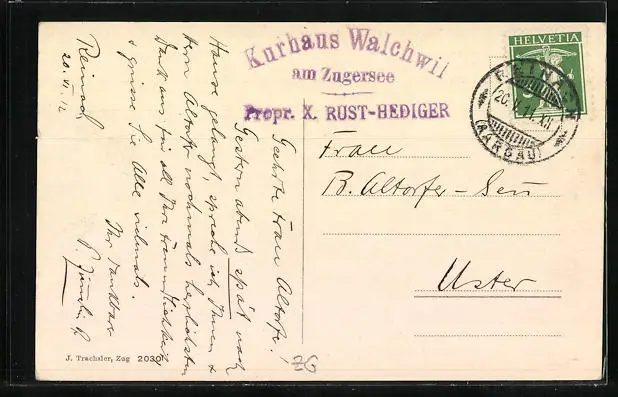 Kurhaus Walchwil
am Zugersee
Propr. X. RUST-HEDIGER
HELVETIA
REINACH
(AARGAU)
Frau
B. Altorfer-Senn
Uster
Reinach
20. VI. 12
Geehrte Frau Altorfer!
Gestern abend spät nach
Hause gelangt, spreche ich Ihnen &
Herrn Altorfer nochmals herzlichsten
Dank aus für all Ihre Freundlichkeit
& grüsse Sie Alle vielmals.
Ihr dankbar
J. Trachsler, Zug 2030
ZG